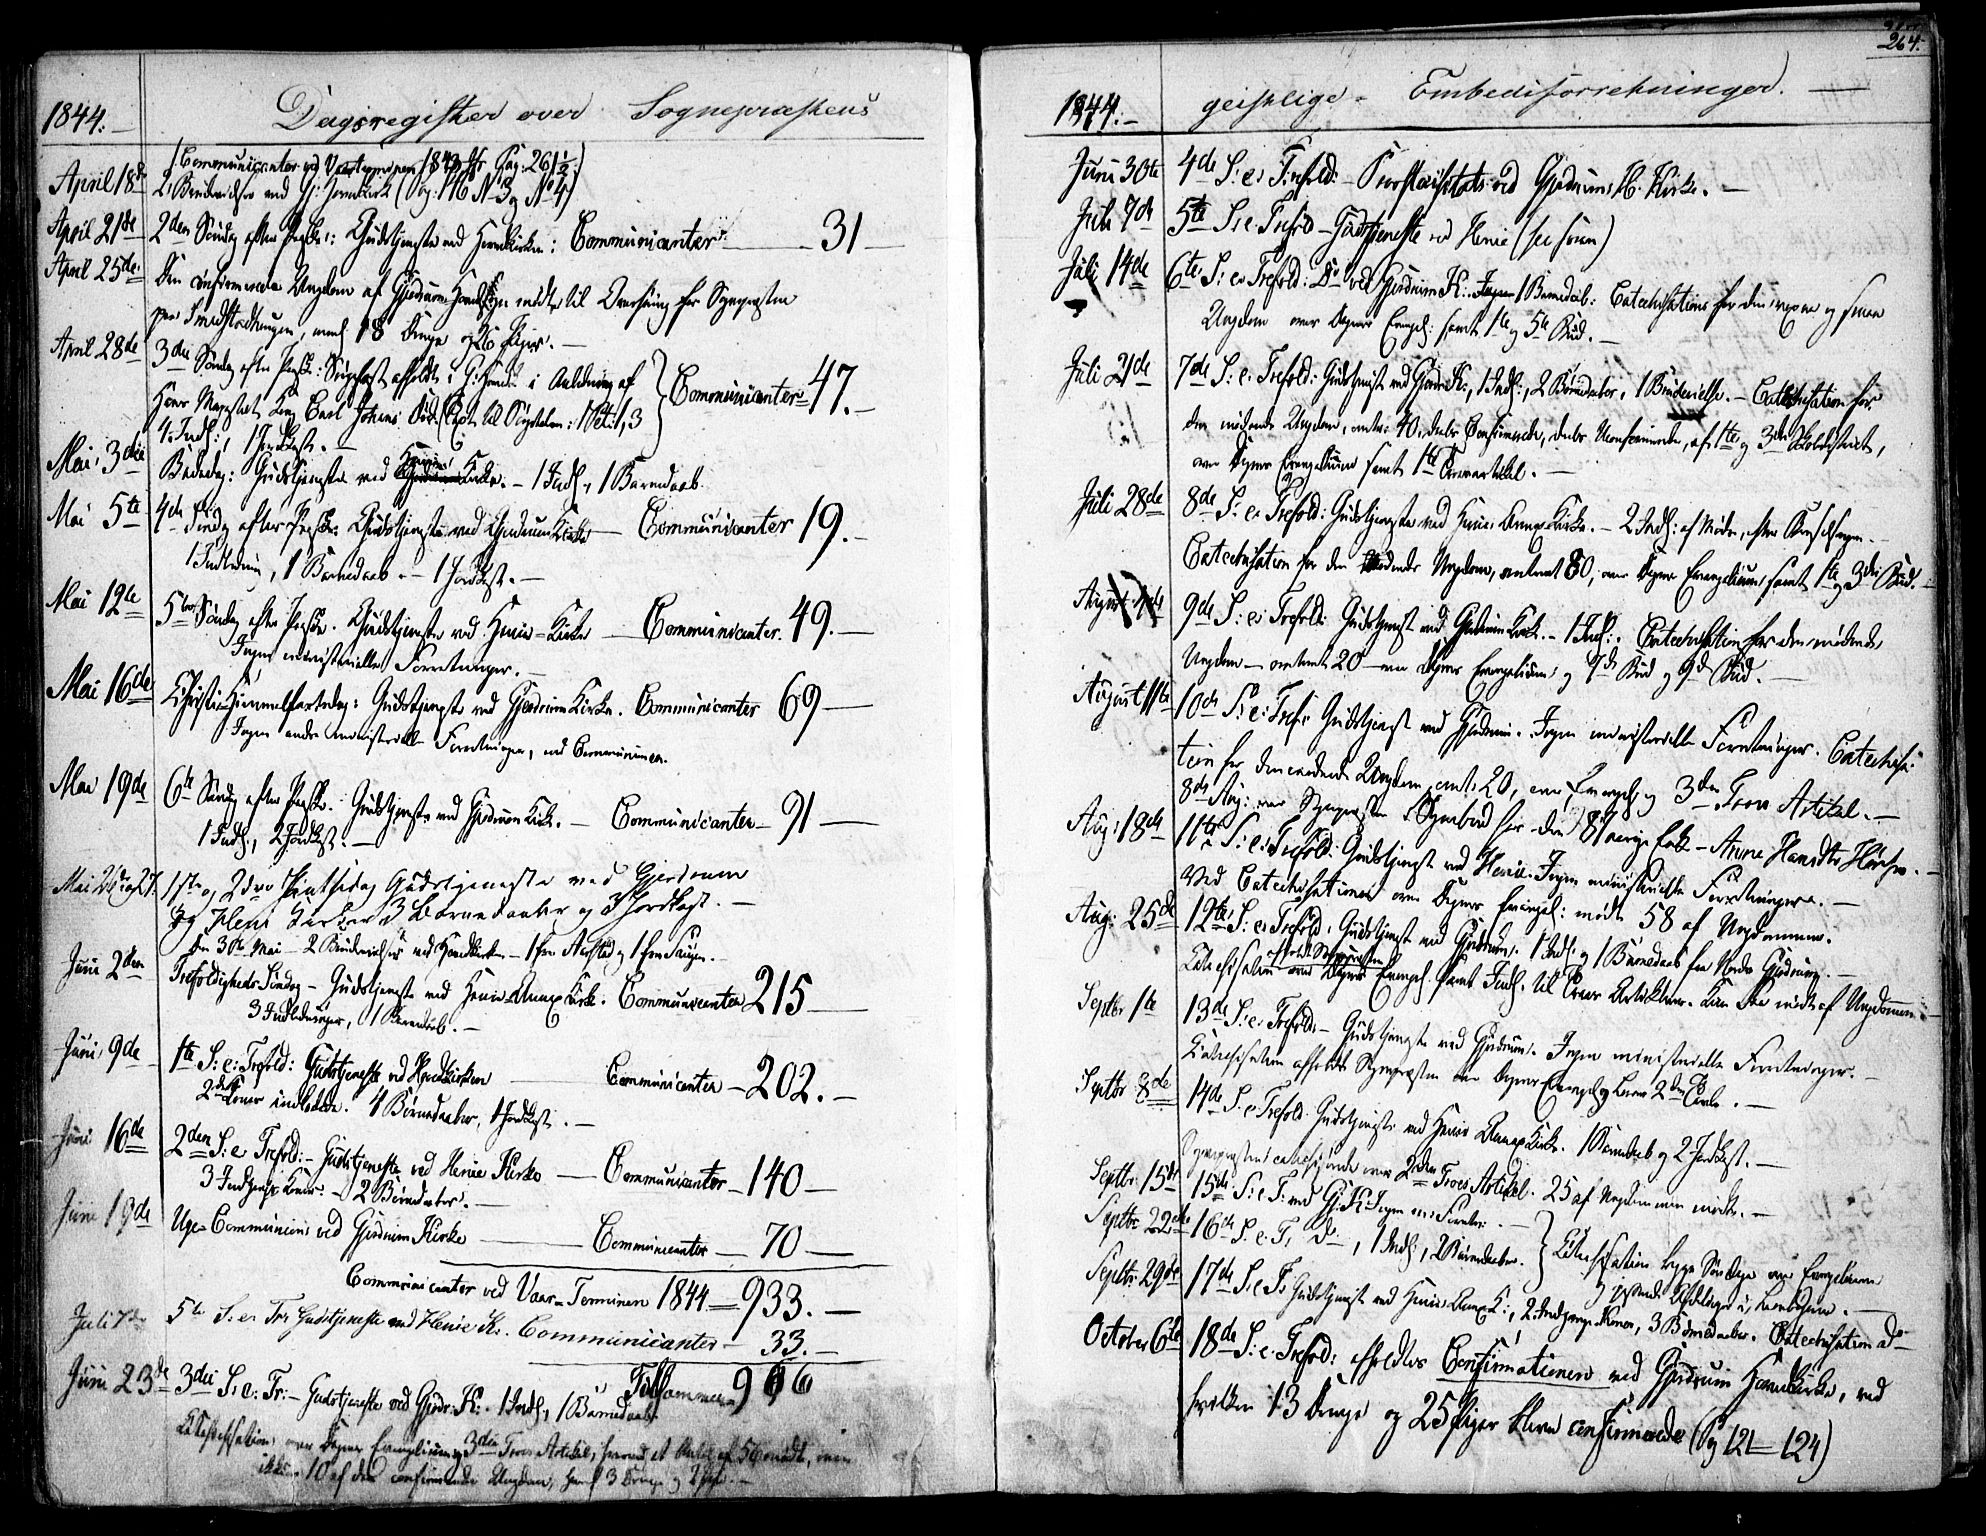 1844.
Dagsregister over Sognepræstens
(Communicanter ved 1843 Pag. 261½)
April 18de 2 Brudevielser ved Gj: Hovedkirk (Pag: 116 No 3 og No 4)
April 21de 2den Søndag efter Paaske: Gudstjeneste ved Hovedkirken: Communicanter: — 31 —
April 25de: Den confirmerende Ungdom af Gjerdrum Hovedsogn mødte til for Sognepræsten
18 Drenge og 26 Piger. —
April 28de 3die Søndag efter Paaske: Sørgefest afholdt i G: i Anledning af
Hans Majestæt Kong Carl Johans Død. (Text til : 1 Pet: 1,3 Communicanter = 47. —
4 Indl:, 1 Jordkast. —
Mai 3die Bededag: Gudstjeneste ved Heni Kirke. — 1 Indl., 1 Barnedaab.
Mai 5te 4de Søndag efter Paaske Gudstjeneste ved Gjerdrum Kirke — Communicanter 19. —
1 Indledning, 1 Barnedaab — 1 Jordkast. —
Mai 12te 5te Søndag efter Paaske. Gudstjeneste ved Henie-Kirke — Communicanter. 49. —
Ingen ministerielle Forretninger. —
Mai 16de Christi Himmelfartsdag: Gudstjeneste ved Gjerdrum Kirke. Communicanter 69 —
Ingen andre ministerielle Forretninger, end Communionen.
Mai 19de 6te Søndag efter Paaske. Gudstjeneste ved Gjerdrum Kirke. — Communicanter — 91 —
1 Indl., 2 Jordkast. —
Mai 26de og 27. 1ste og 2den Pintsedag Gudstjeneste ved Gjerdrum
og Heni Kirker 3 Barnedaaber og 3 Jordkast. —
Den 30te Mai — 2 Brudevielser ved Hovedkirken — 1 fra og 1 fra
Juni 2den Trefoldigheds Søndag — Gudstjeneste ved Henie Annex Kirke. Communicanter 215 —
3 Indledninger, 1 Barnedaab. —
Juni 9de 1ste S: e: Trefold: Gudstjeneste ved Hovedkirken — Communicanter — 202. —
2de Koner indledede. 4 Børnedaaber, 1 Jordkast. —
Juni 16de 2den S: e Trefold: — Gudstjeneste ved Henie Kirke — Communicanter — 140 —
3 Indgangs Koner. — 2 Børnedaaber. —
Juni 19de Uge-Communion ved Gjerdrum Kirke — Communicanter — 70 —
Communicanter ved Vaar-Terminen 1844 = 933. —
Juli 7de 5te S: e: Tr: Gudstjeneste ved Henie K:. Communicanter — 33. —
Tilsammen 966
Juni 23de 3die S: e: Tr: — Gudstjeneste ved Gjerdr: K:. 1 Indl:, 1 Barnedaab.
Katechisation over Dagens Evangelium og 3die Troes Artikel, hvorved et Antal af 56 mødt, men
ikke. 10 af den confirmerende Ungdom, 3 Drenge og
264.
1844. —
geistlige — Embedsforretninger. —
Juni 30te 4de S: e: Trefold: — ved Gjerdrums H. Kirke. —
Juli 7de 5te S: e Trefold — Gudstjeneste ved Henie (see foran)
Juli 14de 6te S: e Trefold: Do ved Gjerdrum K:. 1 Barnedaab: Catechisation for den voxne og smaa
Ungdom over Dagens Evangel: samt 1te og 5te Bud. —
Juli 21de 7de S: e: Trefold: Gudstjeneste ved Gjerdr: K:, 1 Indl:, 2 Børnedaaber, 1 Brudevielse. — Catechisation for
den mødende Ungdom, omtr: 40, deels Confirmerede, deels Uconfirmerede, af 1te og 3die Skoledistrict,
over Dagens Evangelium samt 1te Troesartikel. —
Juli 28de 8de S: e Trefold: Gudstjeneste ved Henie Annex Kirke. — 2 Indl: af Mødre, efter Barselseng. —
Catechisation for den mødende Ungdom, omtrent 80, over Dagens Evangelium, samt 1te og 3die Bud. —
August 4de 9de S: e: Trefold: Gudstjeneste ved Gjerdrum Kirke. — 1 Indl:. Catechisation for den mødende
Ungdom — omtrent 20 — over Dagens Evangelium og 7de Bud og 9de Bud. —
August 11te 10de S: e: Tref: Gudstjeneste ved Gjerdrum. Ingen ministerielle Forretninger. Catechisa-
tion for den mødende Ungdom, omtr: 20, over Evangel: og 3die Troes Artikel. —
8de Aug: var Sognepræsten i Sognebud for den 87 aarige Enke — Anne Hansdtr —
Aug: 18de 11te S: e: Trefold: Gudstjeneste ved Henie. Ingen ministerielle Forretninger. —
Ved Catechisationen over Dagens Evangel: mødte 58 af Ungdommen.
Aug: 25de 12te S: e: Trefold: Gudstjeneste ved Gjerdrum. 1 Indl: og 1 Barnedaab fra Gjerdrum. —
afholdt Sognepræsten
Katechisation over Dagens Evangel: samt Indl. til Troes Artiklerne. Kun mødt af Ungdommen. —
Septbr 1te 13de S: e: Trefold: — Gudstjeneste ved Gjerdrum. Ingen ministerielle Forretninger. —
Katechisation afholdt Sognepræsten over Dagens Evangel: og 2den —
Septbr: 8de 14de S: e Trefold. Gudstjeneste ved Henie Annex Kirke. 1 Barnedaab og 2 Jordkast. —
Sognepræsten catechiserede over 2den Troes Artikel. 25 af Ungdommen mødte. —
Septbr: 15de 15de S: e T: ved Gj: K: Ingen min: Forretn: —
Septbr 22de 16de S: e: T: Do —, 1 Indl:, 2 Børnedaaber. Katechisation begge Søndage over Evangelierne
Septbr. 29de 17de S: e T: Gudstjeneste ved Henie Annex K:, 2 Indgangs Koner, 3 Børnedaaber. Catechisation do —
October 6te 18de S: e: Trefold: afholdtes Confirmationen ved Gjerdrum Hovedkirke, ved
hvilken 13 Drenge og 25 Piger bleve confirmerede (Pag 121 — 124)